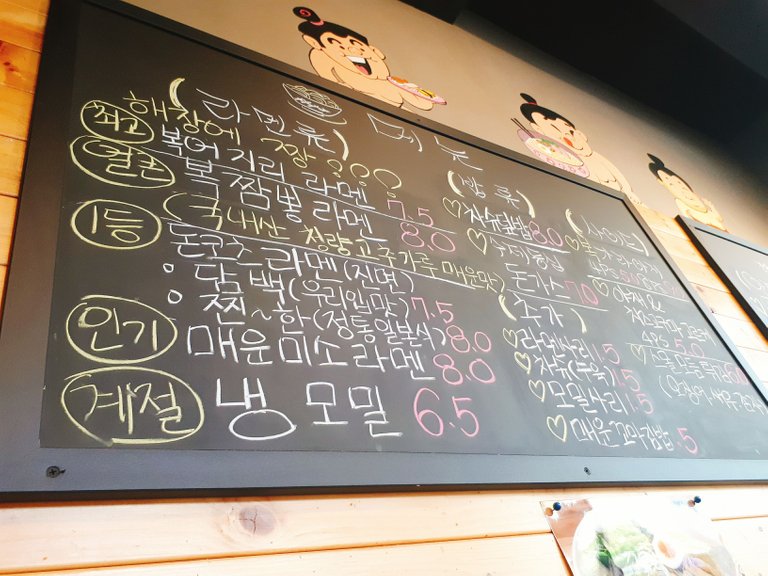 메뉴
(라멘류)
최고 해장에 짱 ???
복어 지리 라멘 7.5
얼큰 복 짬뽕 라멘 8.0
(국내산 청량고추가루 매운맛)
1등 돈코츠라멘(진면)
담백(우리입맛) 7.5
찐~한(정통일본식) 8.0
인기 매운미소라멘 8.0
계절 냉모밀 6.5
(밥류)
♡차슈덮밥 8.0
돈가스 7.0
(추가)
♡라멘사리 1.5
♡차슈(목육) 1.5
♡모밀사리 1.5
♡매운꼬마김밥 .5
(사이드)
♡야채&
4PS 5.0